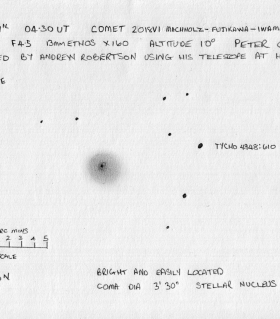 04·30 UT COMET 2018V1 MACHHOLZ-FUJIKAWA-IWAM
F4·5 8mm ETHOS X160 ALTITUDE 10° PETER
BY ANDREW ROBERTSON USING HIS TELESCOPE AT H
TYCHO 4948:610
ARC MINS
2 3 4 5
SCALE
BRIGHT AND EASILY LOCATED
COMA DIA 3' 30" STELLAR NUCLEUS